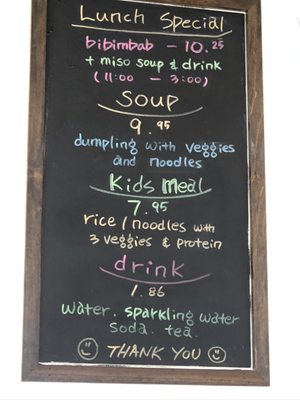 Lunch Special
bibimbab - 10.25
+ miso soup & drink
(11:00 - 3:00)
Soup
9.95
dumpling with veggies
and noodles
Kids Meal
7.95
rice / noodles with
3 veggies & protein
drink
1.86
water. sparkling water
soda. tea.
THANK YOU